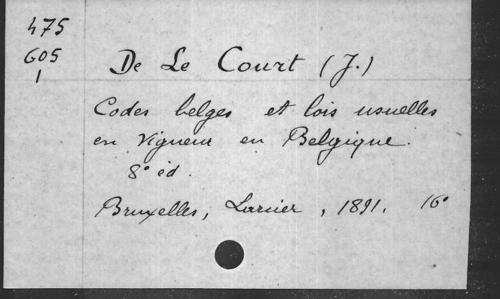 475
605
1
De Le Court (J.)
Codes belges et lois usuelles
en vigueur en Belgique.
8° éd.
Bruxelles, Larcier, 1891. 16°